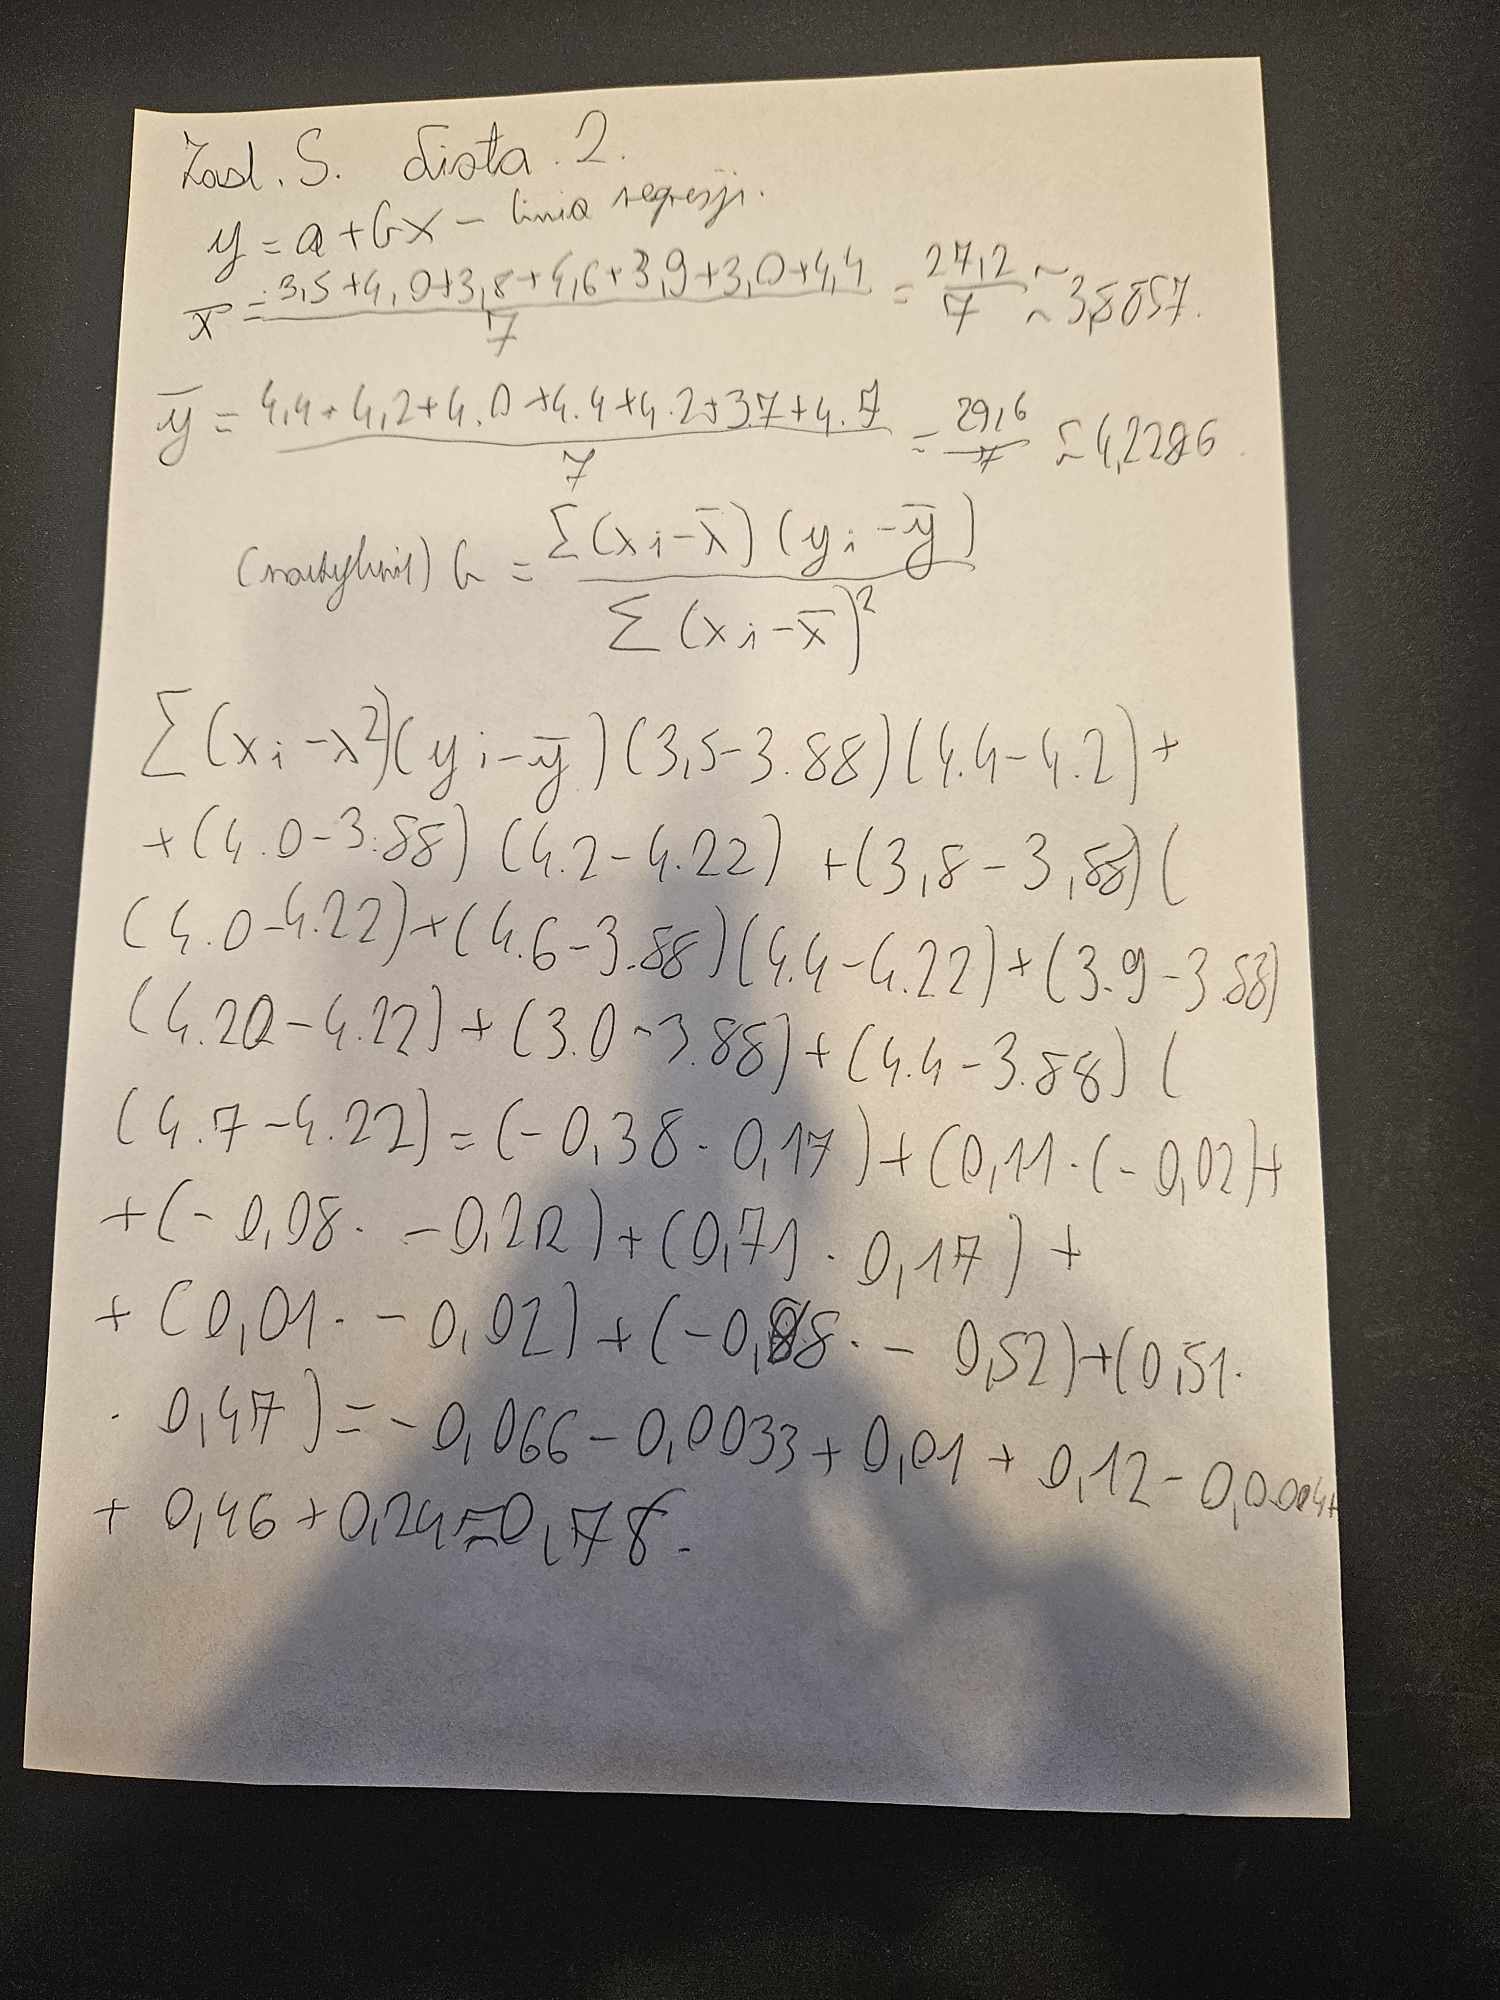 Zad. 5. Lista. 2.
y = a + bx - linia regresji.
x̄ = (3,5+4,0+3,8+4,6+3,9+3,0+4,4)/7 = 27,2/7 ≈ 3,8857.
ȳ = (4,4+4,2+4.0+4.4+4.2+3.7+4.7)/7 = 29,6/7 ≈ 4,2286.
(nachylenie) b = Σ(xi-x̄)(yi-ȳ) / Σ(xi-x̄)²
Σ(xi-x²)(yi-ȳ)(3,5-3.88)(4.4-4.2)+
+(4.0-3.88)(4.2-4.22)+(3,8-3,88)(
(4.0-4.22)+(4.6-3.88)(4.4-4.22)+(3.9-3.88)
(4.20-4.22)+(3.0-3.88)+(4.4-3.88)(
(4.7-4.22)=(-0,38·0,17)+(0,11·(-0,02)+
+(-0,08·-0,22)+(0,71·0,17)+
+(0,01·-0,02)+(-0,88·-0,52)+(0,51·
·0,47)=-0,066-0,0033+0,01+0,12-0,0004+
+0,46+0,24≈0,78.